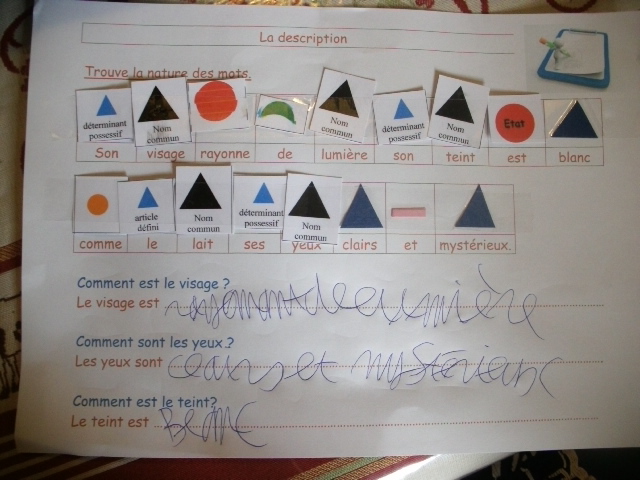 La description
Trouve la nature des mots.
déterminant possessif
Nom commun
Nom commun
déterminant possessif
Nom commun
Etat
Son visage rayonne de lumière son teint est blanc
article défini
Nom commun
déterminant possessif
Nom commun
comme le lait ses yeux clairs et mystérieux.
Comment est le visage ?
Le visage est rayonnant de lumière
Comment sont les yeux ?
Les yeux sont clairs et mystérieux
Comment est le teint?
Le teint est Blanc